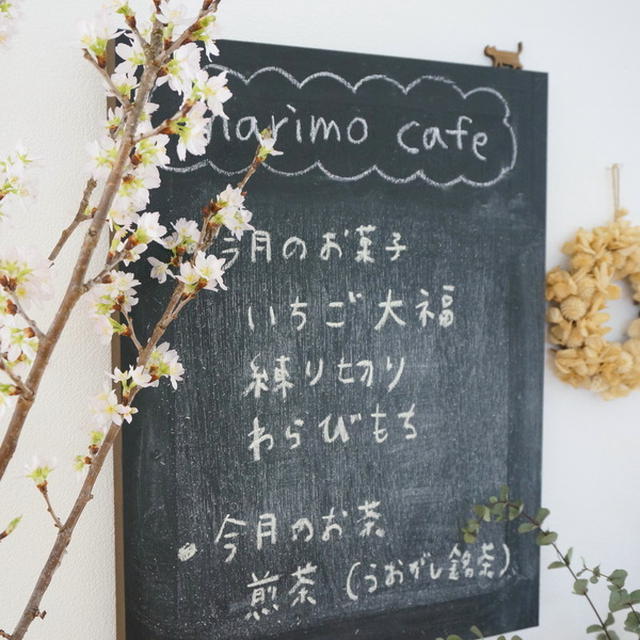 narimo cafe
今月のお菓子
いちご大福
練り切り
わらびもち
・今月のお茶
煎茶 (うおがし銘茶)